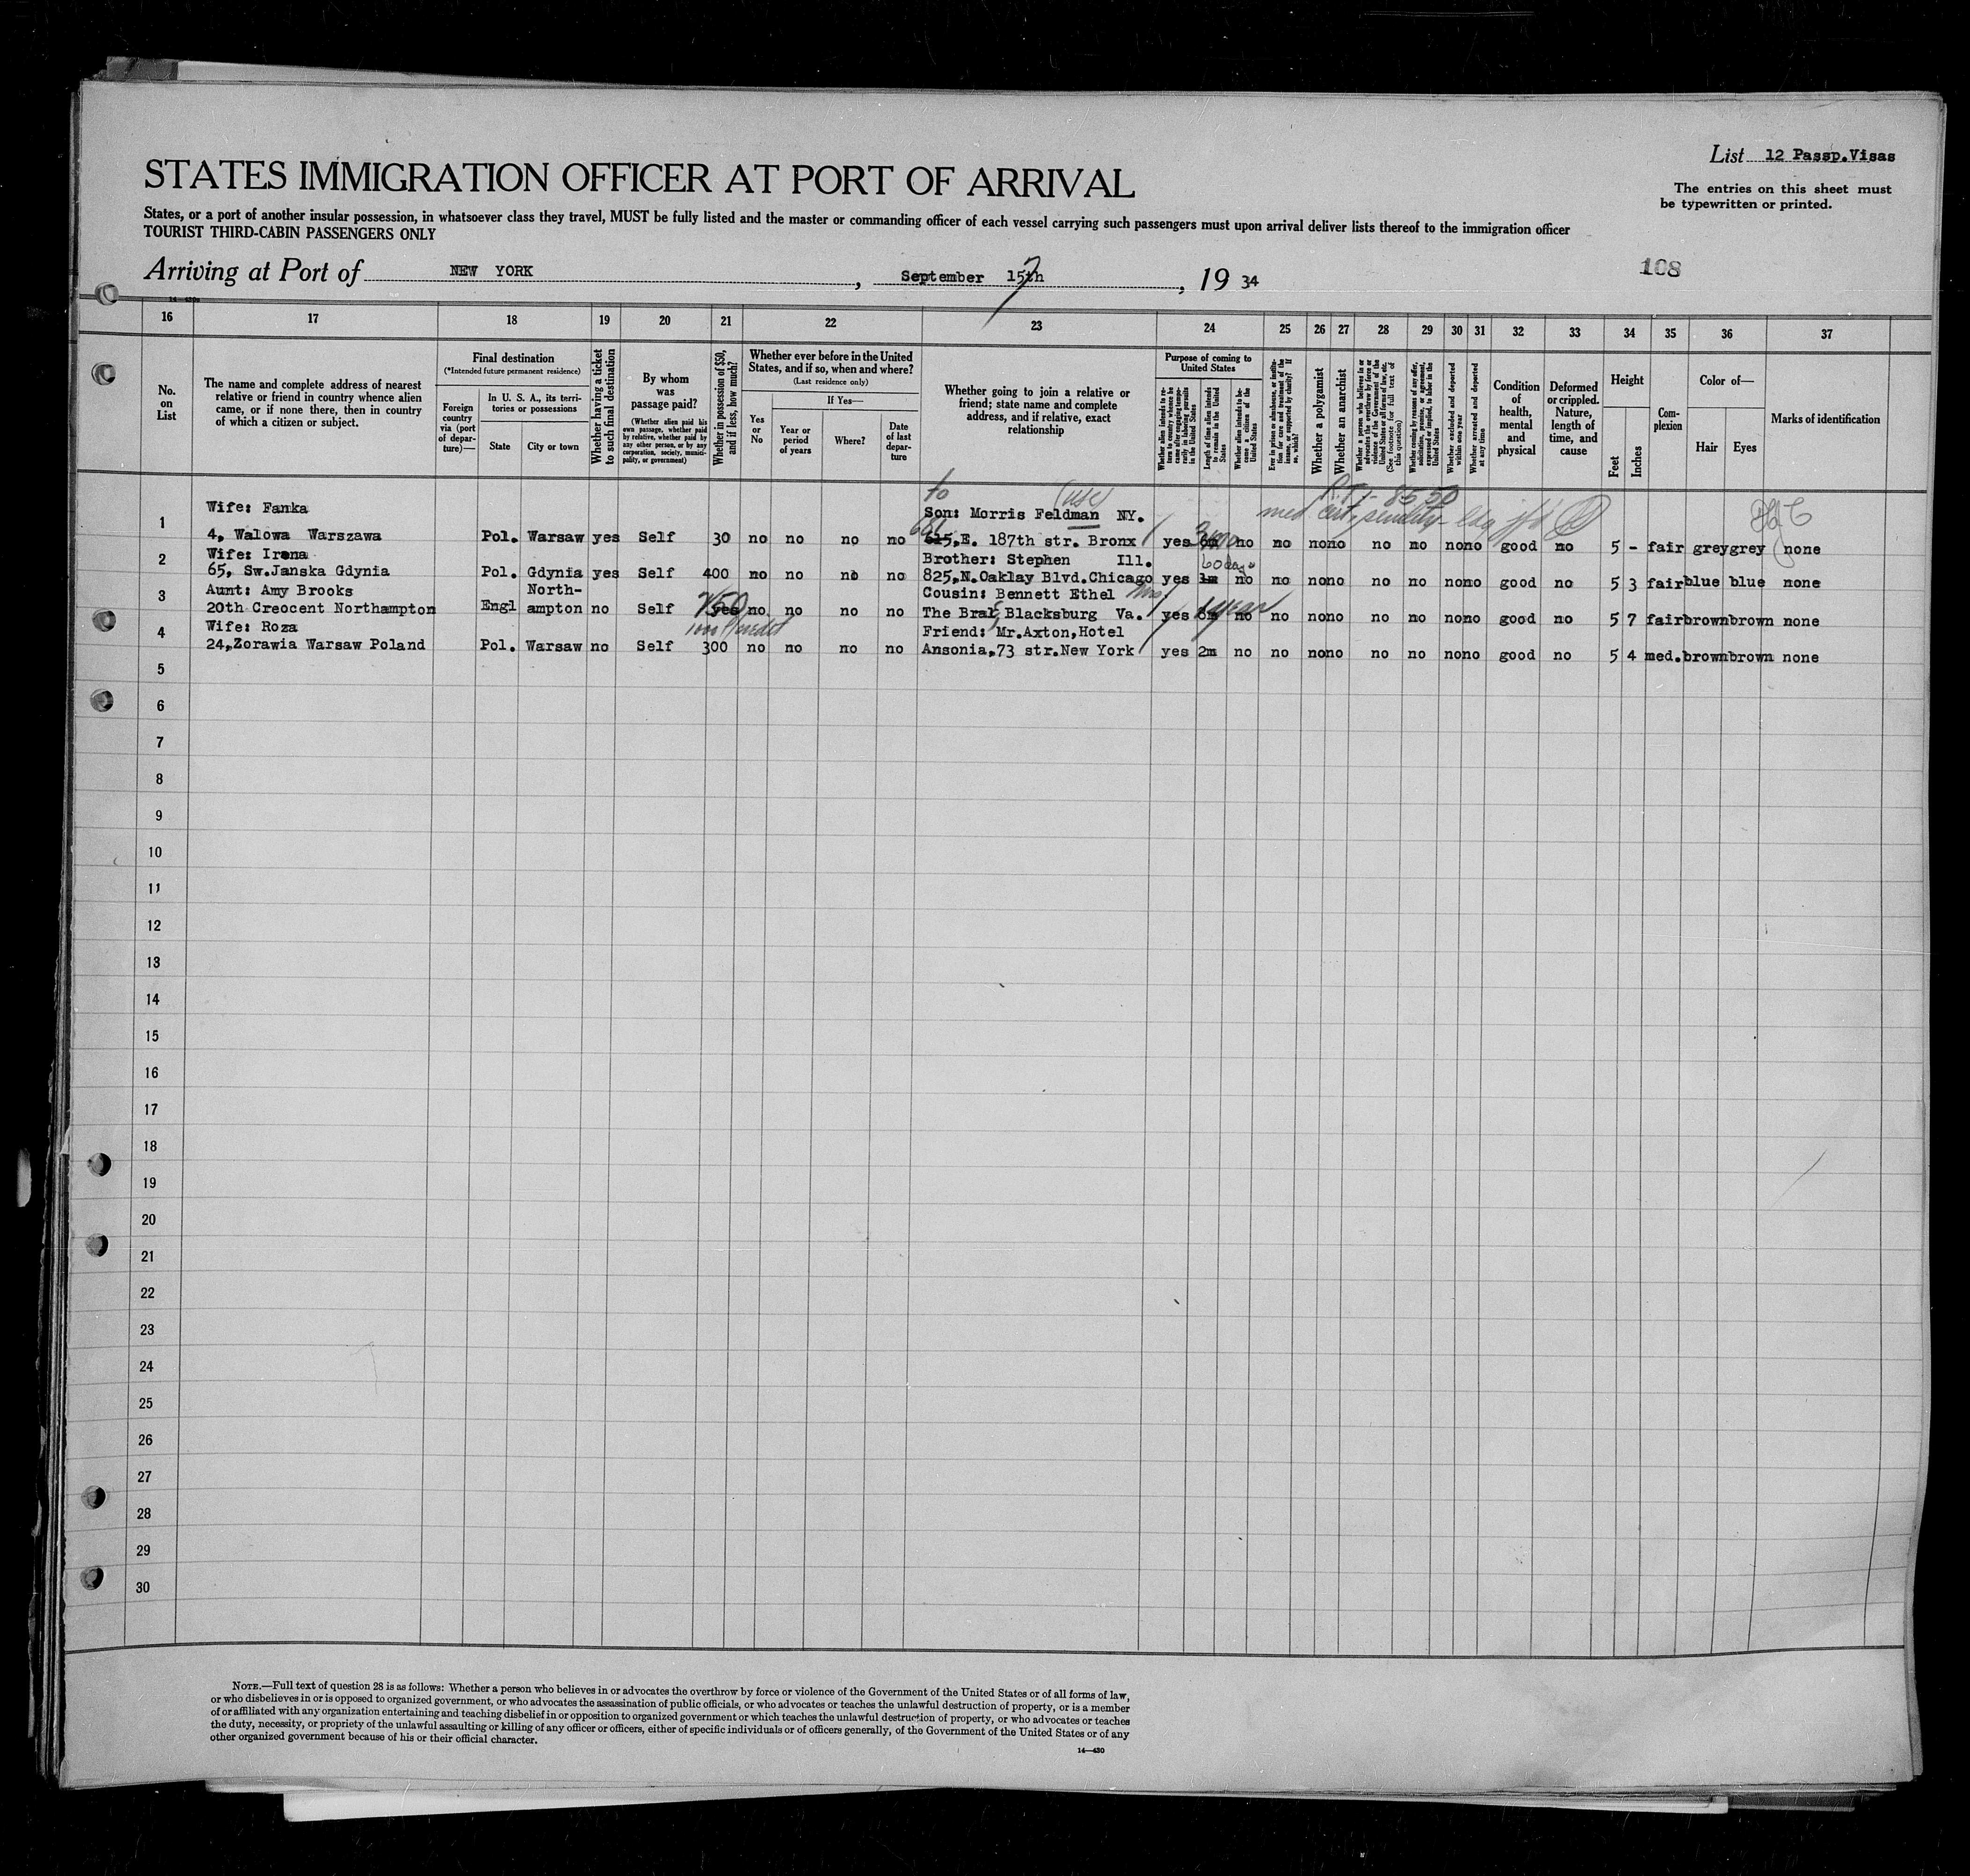 List 12 Passp.Visas
STATES IMMIGRATION OFFICER AT PORT OF ARRIVAL
The entries on this sheet must
be typewritten or printed.
States, or a port of another insular possession, in whatsoever class they travel, MUST be fully listed and the master or commanding officer of each vessel carrying such passengers must upon arrival deliver lists thereof to the immigration officer
TOURIST THIRD-CABIN PASSENGERS ONLY
Arriving at Port of NEW YORK, September 15th, 19 34
7
108
16 17 18 19 20 21 22 23 24 25 26 27 28 29 30 31 32 33 34 35 36 37
No.
on
List
The name and complete address of nearest
relative or friend in country whence alien
came, or if none there, then in country
of which a citizen or subject.
Final destination
(*Intended future permanent residence)
Foreign
country
via (port
of depar-
ture)—
In U. S. A., its terri-
tories or possessions
State
City or town
Whether having a ticket
to such final destination
By whom
was
passage paid?
(Whether alien paid his
own passage, whether paid
by relative, whether paid by
any other person, or by any
corporation, society, munici-
pality, or government)
Whether in possession of $50,
and if less, how much?
Whether ever before in the United
States, and if so, when and where?
(Last residence only)
Yes
or
No
If Yes—
Year or
period
of years
Where?
Date
of last
depar-
ture
Whether going to join a relative or
friend; state name and complete
address, and if relative, exact
relationship
Purpose of coming to
United States
Whether alien intends to re-
turn to country whence he
came after engaging tempo-
rarily in laboring pursuits
in the United States
Length of time alien intends
to remain in the United
States
Whether alien intends to be-
come a citizen of the
United States
Ever in prison or almshouse, or institu-
tion for care and treatment of the
insane, or supported by charity? If
so, which?
Whether a polygamist
Whether an anarchist
Whether a person who believes in or
advocates the overthrow by force or
violence of the Government of the
United States or all forms of law, etc.
(See footnote for full text of
this question)
Whether coming by reason of any offer,
solicitation, promise, or agreement,
expressed or implied, to labor in the
United States
Whether excluded and deported
within one year
Whether arrested and deported
at any time
Condition
of
health,
mental
and
physical
Deformed
or crippled.
Nature,
length of
time, and
cause
Height
Feet
Inches
Com-
plexion
Color of—
Hair
Eyes
Marks of identification
to
85 50
med cert, senility
1 Wife: Fanka Son: Morris Feldman NY.
4, Walowa Warszawa Pol. Warsaw yes Self 30 no no no no 615,E. 187th str. Bronx yes 6m no no nono no no nono good no 5 - fair grey grey none
2 Wife: Irena Brother: Stephen Ill. 60 days
65, Sw.Janska Gdynia Pol. Gdynia yes Self 400 no no no no 825,N.Oaklay Blvd.Chicago yes 1m no no nono no no nono good no 5 3 fair blue blue none
3 Aunt: Amy Brooks North- Cousin: Bennett Ethel Mrs
20th Creocent Northampton Engl ampton no Self yes 250 no no no no The Brae Blacksburg Va. yes 6m 1 year no no nono no no nono good no 5 7 fair brown brown none
4 Wife: Roza Friend: Mr.Axton,Hotel
24,Zorawia Warsaw Poland Pol. Warsaw no Self 300 no no no no Ansonia,73 str.New York yes 2m no no nono no no nono good no 5 4 med. brown brown none
5
6
7
8
9
10
11
12
13
14
15
16
17
18
19
20
21
22
23
24
25
26
27
28
29
30
NOTE.—Full text of question 28 is as follows: Whether a person who believes in or advocates the overthrow by force or violence of the Government of the United States or of all forms of law,
or who disbelieves in or is opposed to organized government, or who advocates the assassination of public officials, or who advocates or teaches the unlawful destruction of property, or is a member
of or affiliated with any organization entertaining and teaching disbelief in or opposition to organized government or which teaches the unlawful destruction of property, or who advocates or teaches
the duty, necessity, or propriety of the unlawful assaulting or killing of any officer or officers, either of specific individuals or of officers generally, of the Government of the United States or of any
other organized government because of his or their official character.
14—430